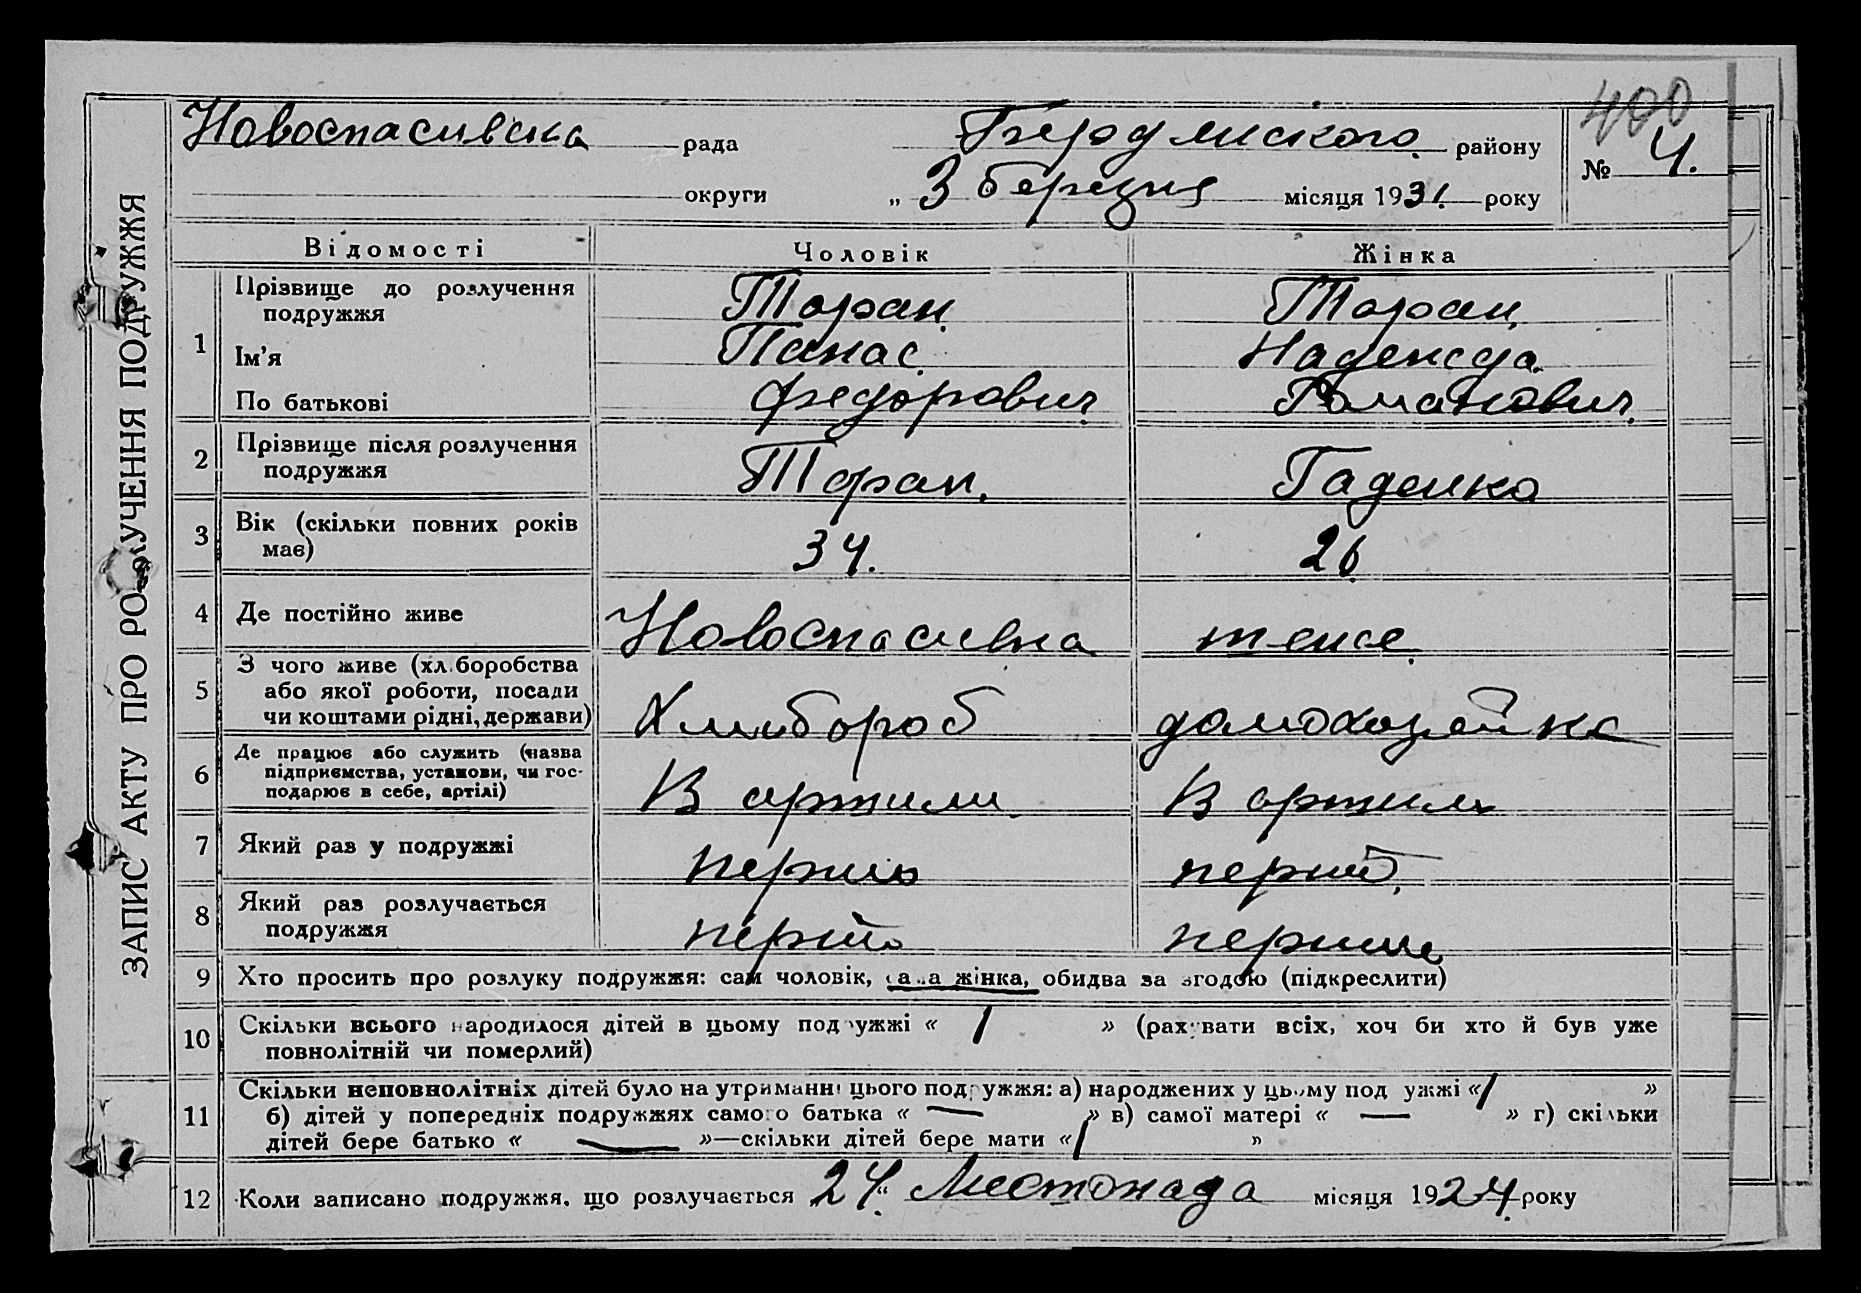 ЗАПИС АКТУ ПРО РОЗЛУЧЕННЯ ПОДРУЖЖЯ
400
Новоспасивска рада Бердянского району № 4.
округи „ 3 березня місяця 1931. року
Відомості Чоловік Жінка
1 Прізвище до розлучення подружжя Торан Торан
Ім’я Панас Надежда
По батькові Федорович Романович
2 Прізвище після розлучення подружжя Торан. Гаденко
3 Вік (скільки повних років має) 34. 26
4 Де постійно живе Новоспасивка теже
5 З чого живе (хліборобства або якої роботи, посади чи коштами рідні, держави) Хлибороб домохозяйка
6 Де працює або служить (назва підприємства, установи, чи господарює в себе, артілі) В артили В артили
7 Який раз у подружжі
8 Який раз розлучається подружжя
9 Хто просить про розлуку подружжя: сам чоловік, сама жінка, обидва за згодою (підкреслити)
10 Скільки всього народилося дітей в цьому подружжі « 1 » (рахувати всіх, хоч би хто й був уже
повнолітній чи померлий)
11 Скільки неповнолітніх дітей було на утриманні цього подружжя: а) народжених у цьому подружжі « 1 »
б) дітей у попередніх подружжях самого батька « — » в) самої матері « — » г) скільки
дітей бере батько « — »—скільки дітей бере мати « 1 »
12 Коли записано подружжя, що розлучається 24 „ Листопада місяця 1924. року